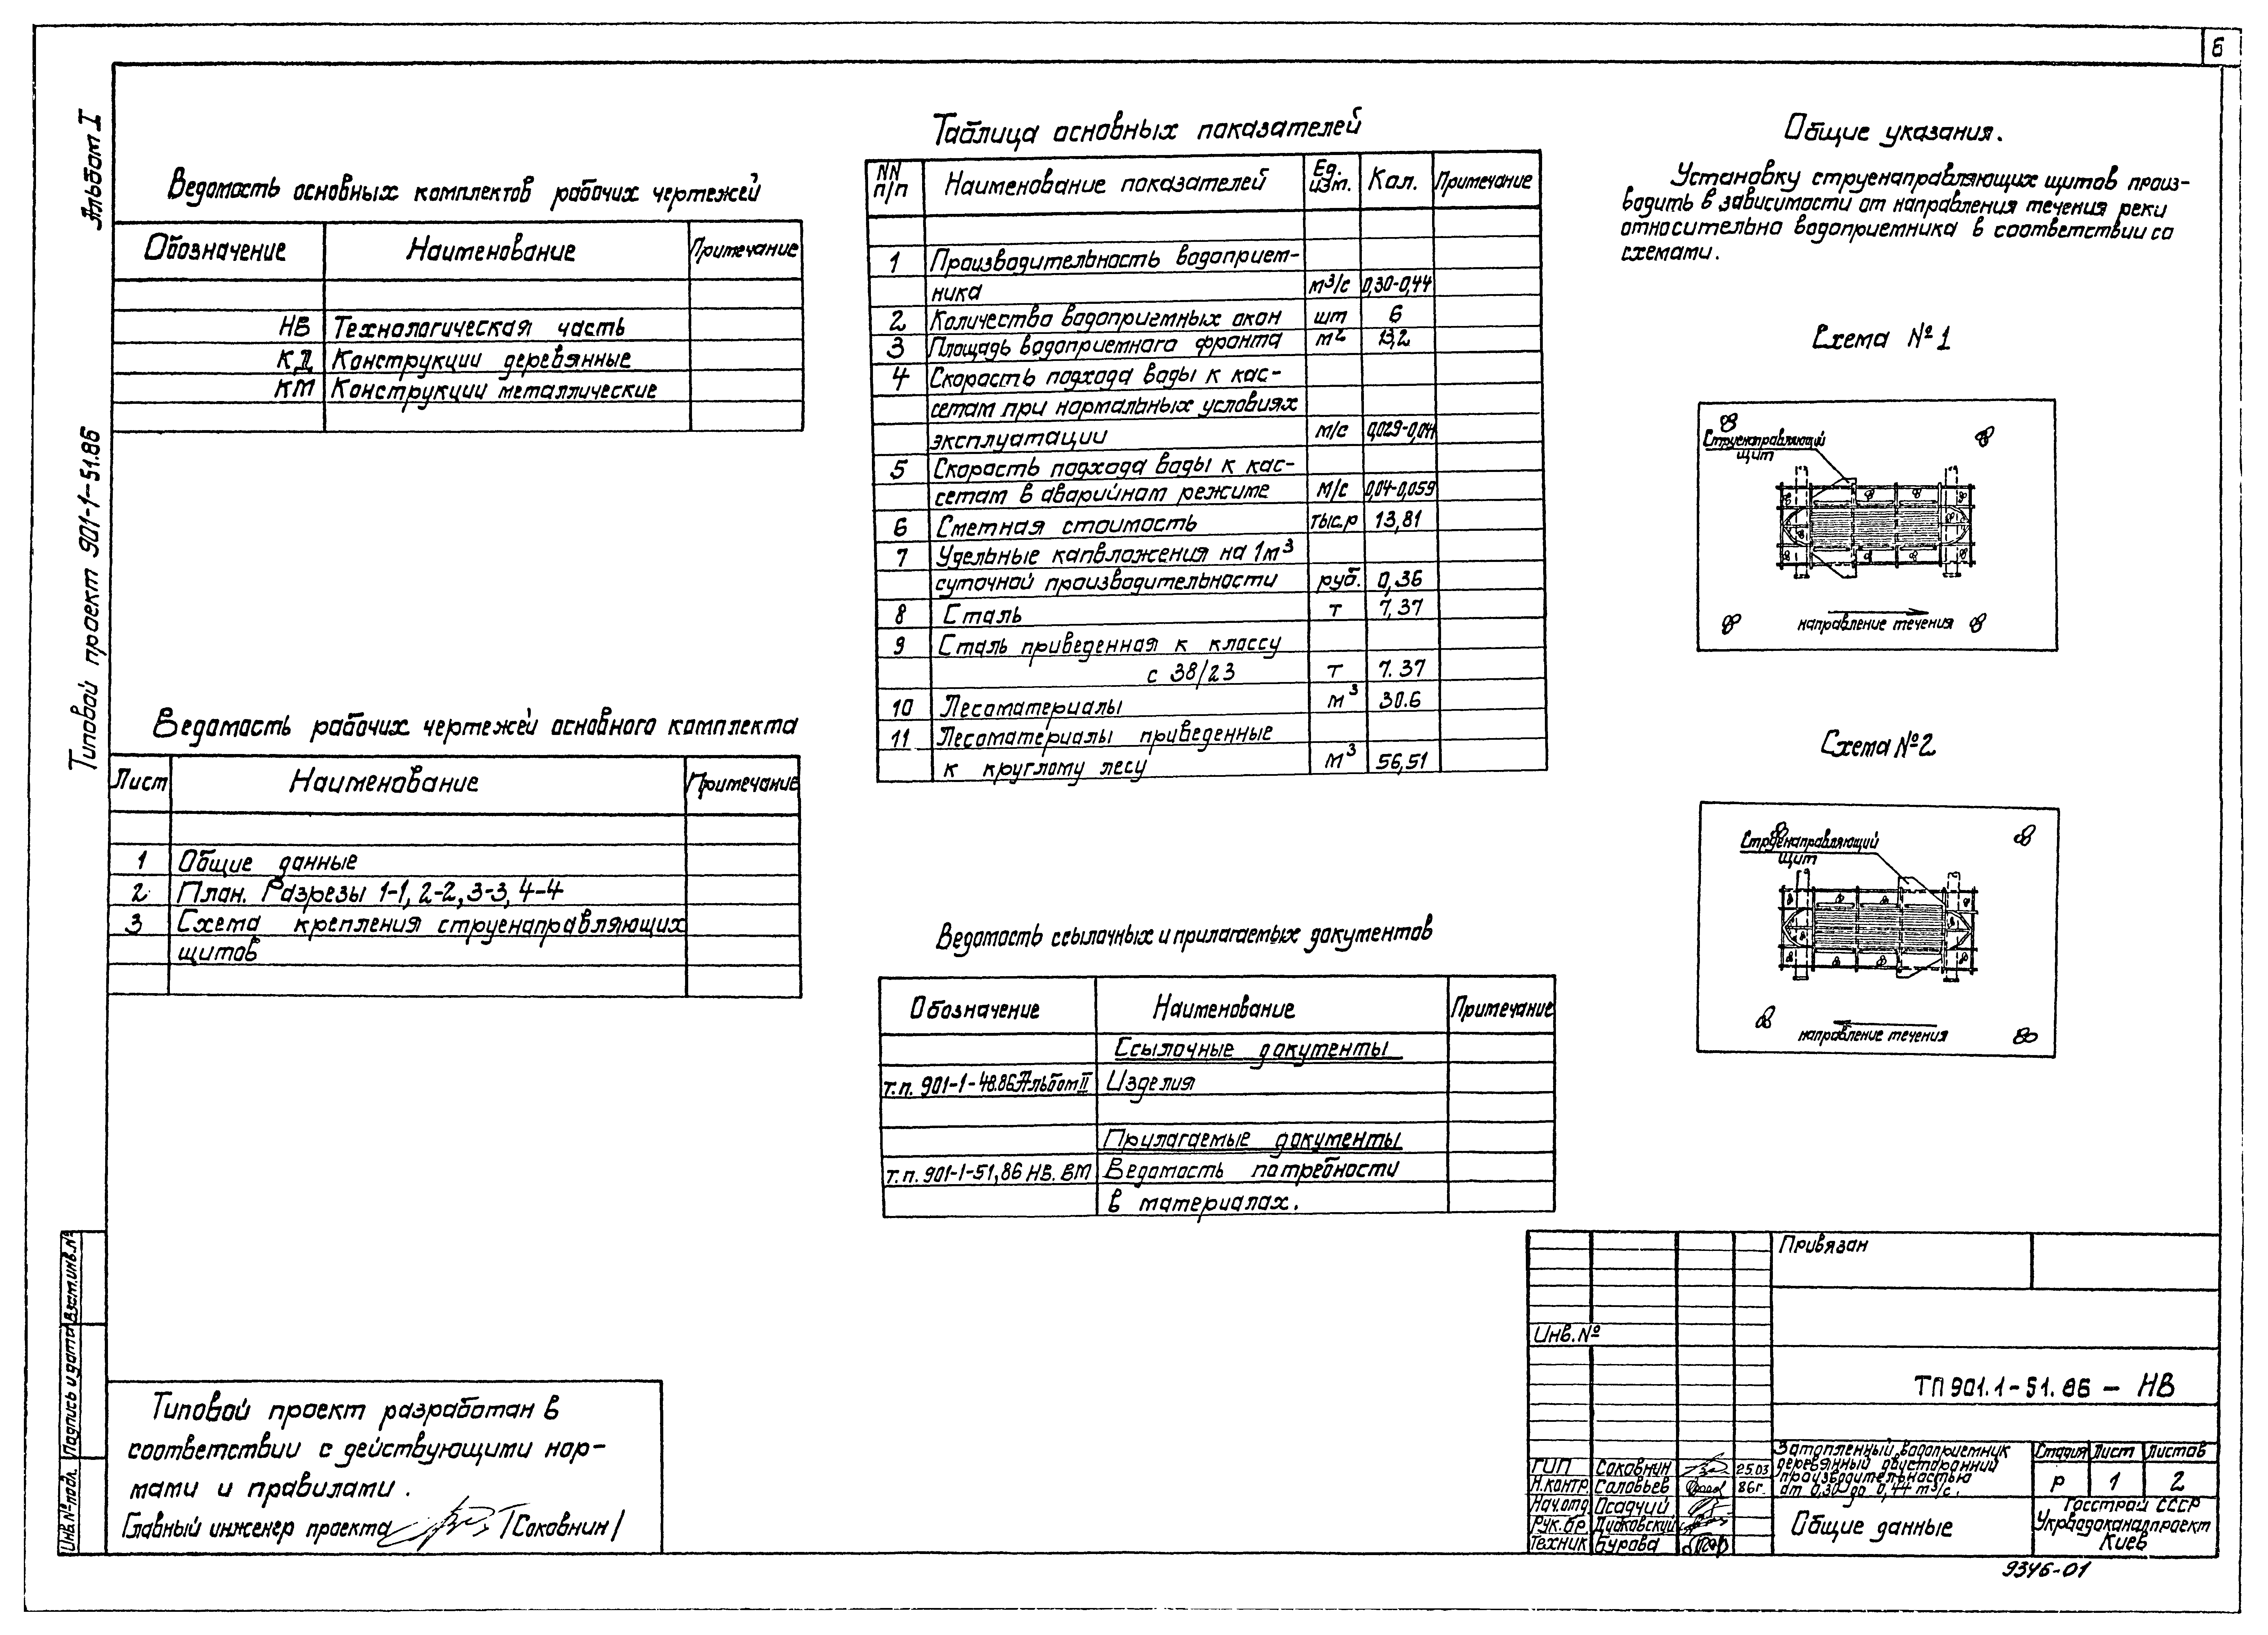 6
Альбом I
Типовой проект 901-1-51.86
Ведомость основных комплектов рабочих чертежей
Обозначение Наименование Примечание
НВ Технологическая часть
КД Конструкции деревянные
КМ Конструкции металлические
Ведомость рабочих чертежей основного комплекта
Лист Наименование Примечание
1 Общие данные
2 План. Разрезы 1-1, 2-2, 3-3, 4-4
3 Схема крепления струенаправляющих
щитов
Таблица основных показателей
NN п/п Наименование показателей Ед. изм. Кол. Примечание
1 Производительность водоприем-
ника м³/с 0,30-0,44
2 Количество водоприемных окон шт 6
3 Площадь водоприемного фронта м² 13,2
4 Скорость подхода воды к кас-
сетам при нормальных условиях
эксплуатации м/с 0,029-0,044
5 Скорость подхода воды к кас-
сетам в аварийном режиме м/с 0,04-0,059
6 Сметная стоимость тыс.р 13,81
7 Удельные капвложения на 1м³
суточной производительности руб. 0,36
8 Сталь т 7,37
9 Сталь приведенная к классу
с 38/23 т 7.37
10 Лесоматериалы м³ 30.6
11 Лесоматериалы приведенные
к круглому лесу м³ 56,51
Ведомость ссылочных и прилагаемых документов
Обозначение Наименование Примечание
Ссылочные документы
т.п. 901-1-48.86 Альбом II Изделия
Прилагаемые документы
т.п. 901-1-51,86 НВ. ВМ Ведомость потребности
в материалах.
Общие указания.
Установку струенаправляющих щитов произ-
водить в зависимости от направления течения реки
относительно водоприемника в соответствии со
схемами.
Схема №1
Струенаправляющий
щит
направление течения
Схема №2
Струенаправляющий
щит
направление течения
Типовой проект разработан в
соответствии с действующими нор-
мами и правилами.
Главный инженер проекта /Соковнин/
Инв.№ подл. Подпись и дата Взам.инв.№
Привязан
Инв.№
ТП 901.1-51.86 - НВ
ГИП Соковнин 25.03
Н.контр. Соловьев 86г.
Нач.отд. Осадчий
Рук.бр. Дидковский
Техник Бурова
Затопленный водоприемник
деревянный двусторонний
производительностью
от 0,30 до 0,44 м³/с.
Стадия Лист Листов
Р 1 2
Общие данные
Госстрой СССР
Укрводоканалпроект
Киев
9346-01